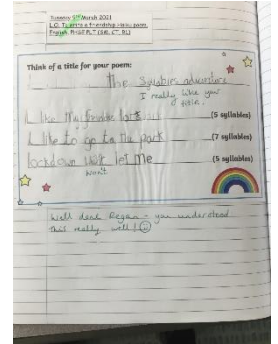 Tuesday 9th March 2021
L.O. To write a friendship Haiku poem.
English, PHSE
Think of a title for your poem:
The Syllabils adventure
I really like your
title.
I like my friends lots (5 syllables)
I like to go to the park (7 syllables)
lockdown let me (5 syllables)
won't
Well done Regan - you understood
this really well!